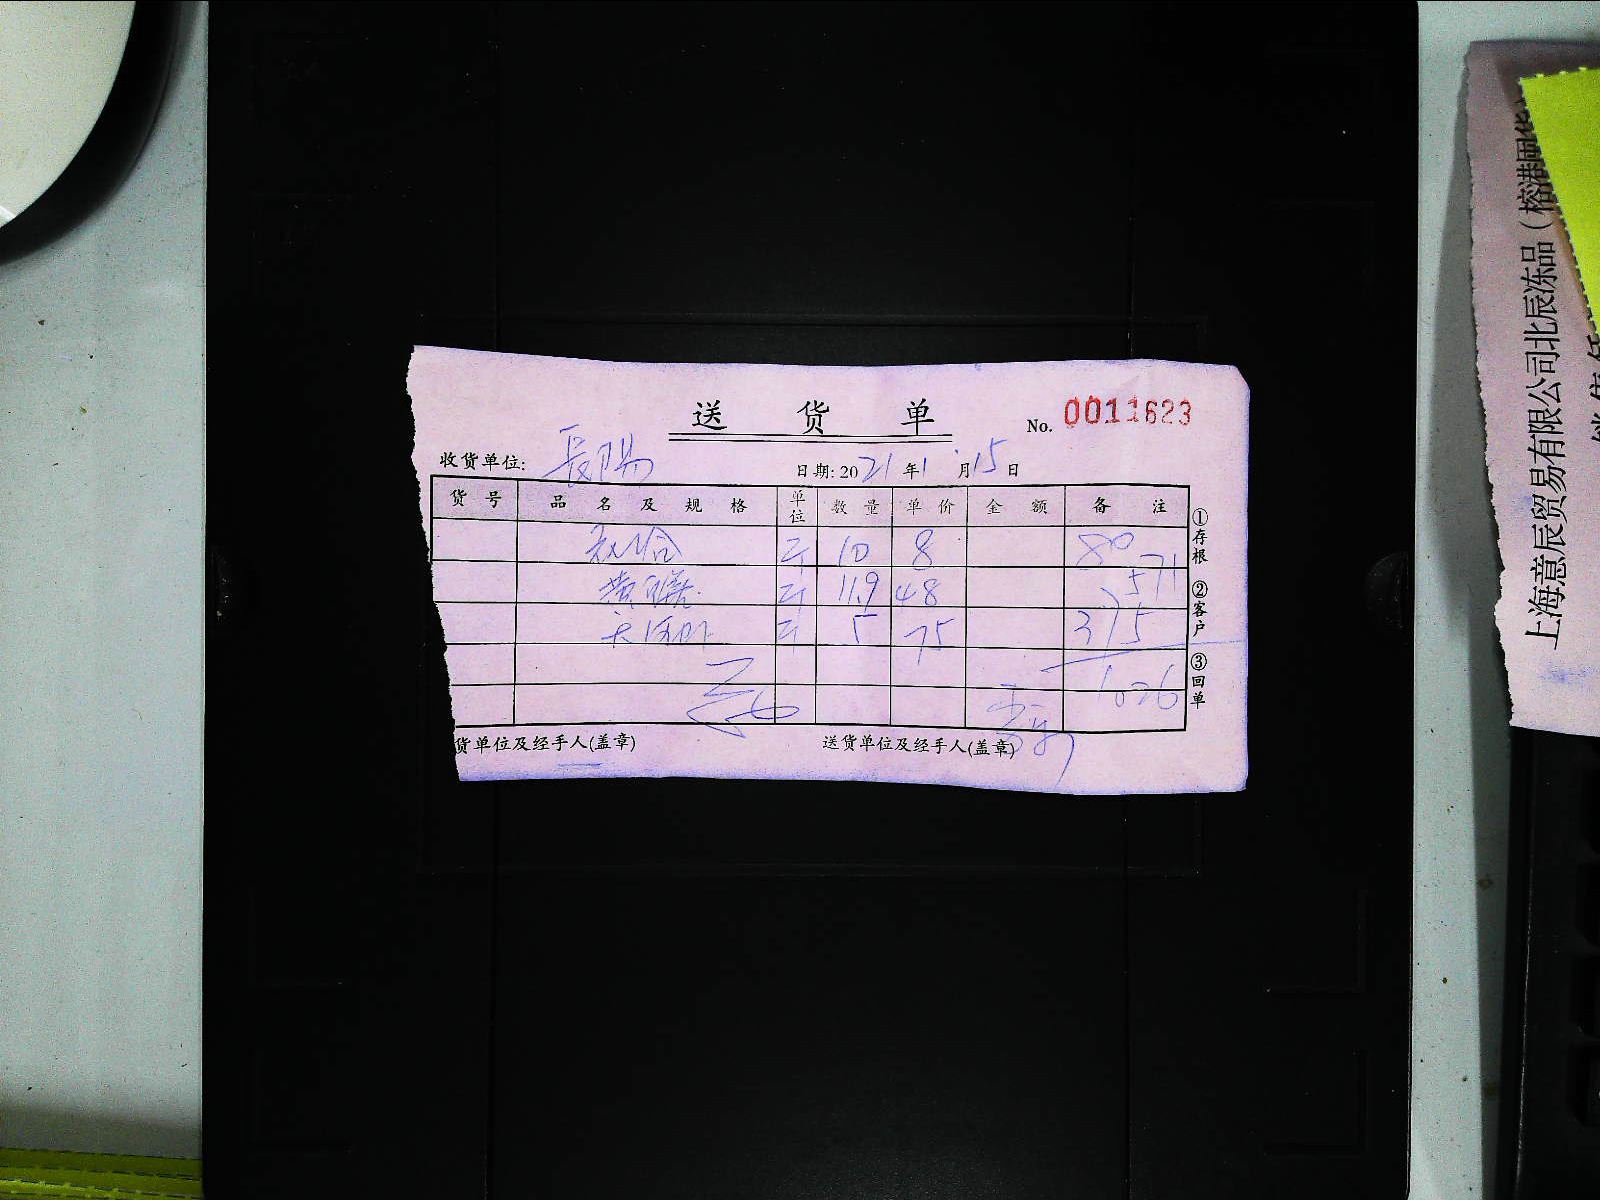 送 货 单
No. 0011623
收货单位: 長阳
日期: 2021年1月15日
货号 品名及规格 单位 数量 单价 金额 备注
斤 10 8 80
黄 斤 11.9 48 571
斤 5 75 375
1026
货单位及经手人(盖章) 送货单位及经手人(盖章)
①存根
②客户
③回单
上海意辰贸易有限公司北辰冻品(榕港闽货)